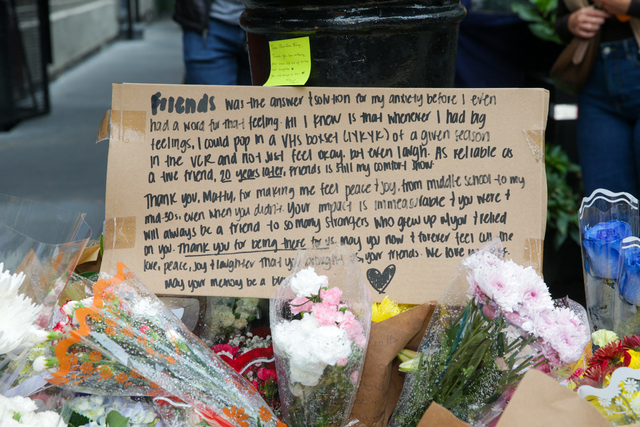 Friends was the answer & solution for my anxiety before I even
had a word for that feeling. All I know is that whenever I had big
feelings, I could pop in a VHS boxset (IYKYK) of a given season
in the VCR and not just feel okay, but even laugh. As reliable as
a true friend, 20 years later, Friends is still my comfort show.
Thank you, Matty, for making me feel peace & joy, from middle school to my
mid-30s, even when you didn't. Your impact is immeasurable & you were &
will always be a friend to so many strangers who grew up w/ you & relied
on you. Thank you for being there for us. May you now & forever feel all the
love, peace, joy & laughter that you brought us, your friends. We love
May your memory be a